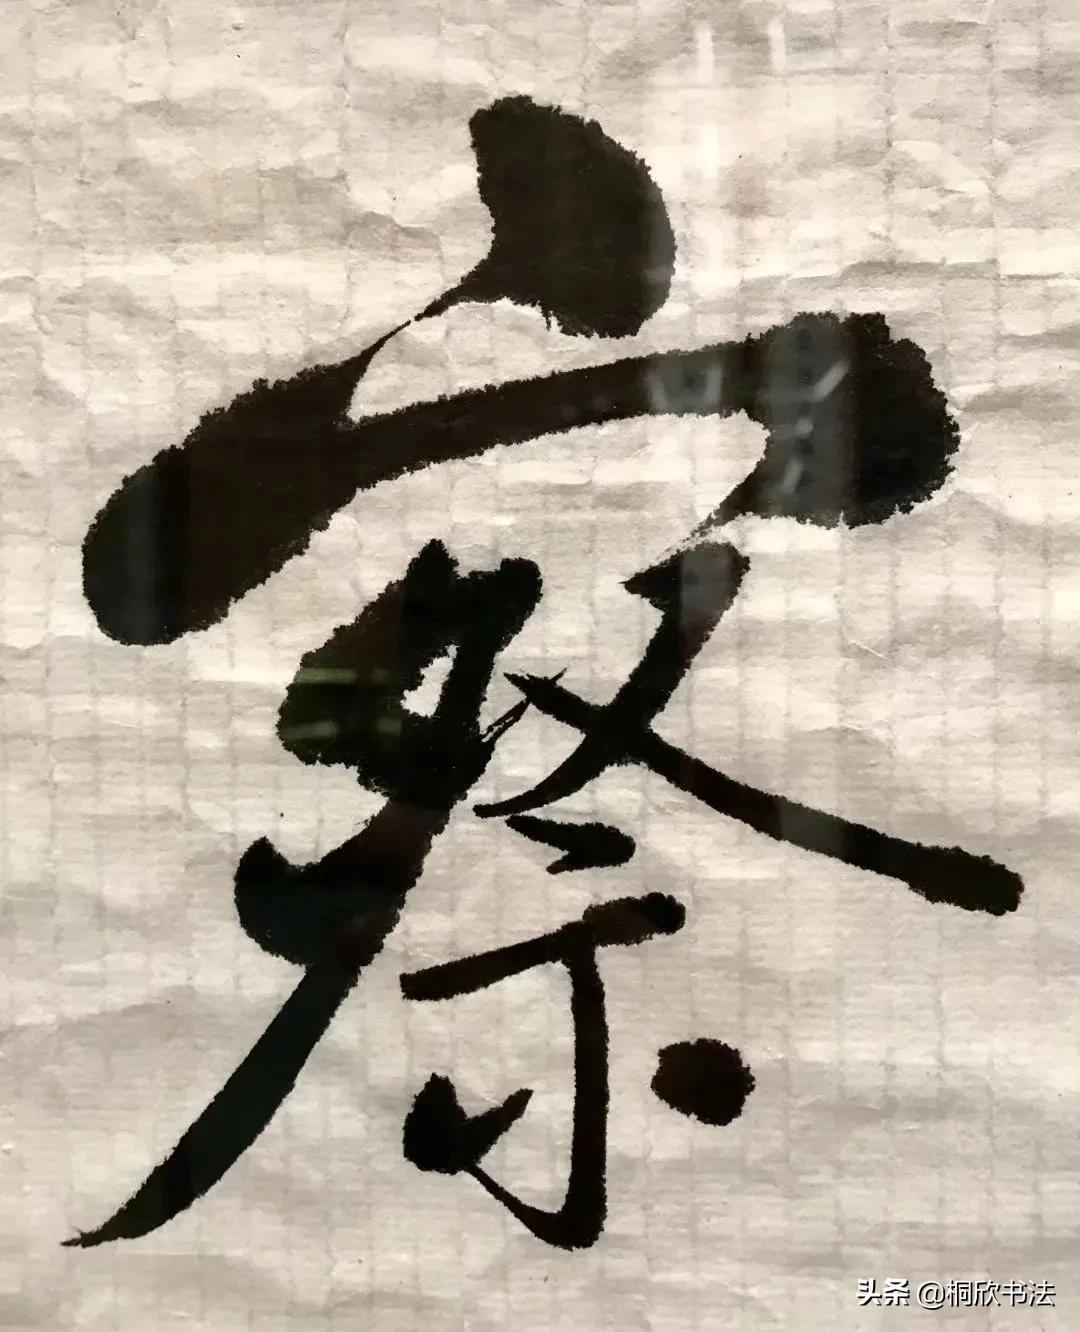 察
头条 @桐欣书法